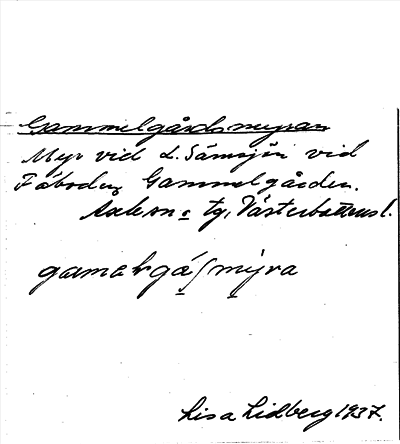 Gammelgårdsmyran
Myr vid L. Sämsjön vid
Fäboden Gammelgården.
Axelsons tg, Västerbottens l.
gamelgåʃmyra
Lisa Lidberg 1937.